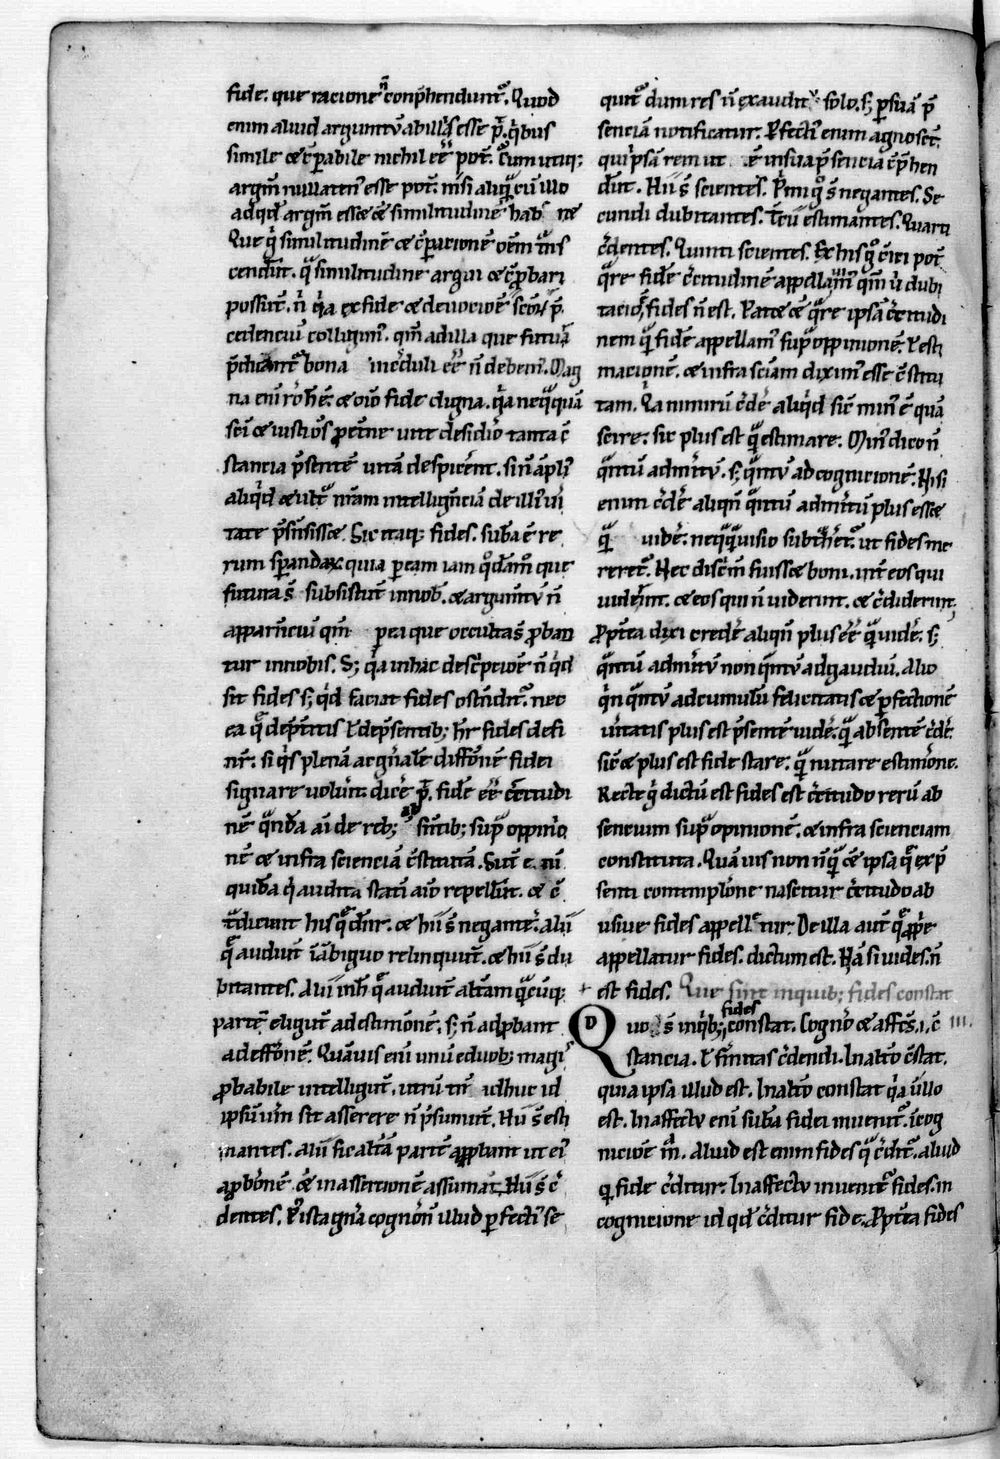 fide. que racione ñ conp̄hendunt᷑. Quod
enim aliud argumtū ab illis esse p̄t. q̇bus
simile ⁊ cōparabile nichil eē pot̄. Cum utiq;
argm̄ nullaten᷒ esse pot̄. nisi aliq̄ cū illo
ad qd̓ argm̄ est ⁊ similitudinē hab
Que g̊ similitudinē ⁊ cōparacionē om̄em
cendūt. q̄ similitudine argui ⁊ cōprobari
possint. n̄ q̓a ex fide ⁊ deuocionē scōꝝ p̄
cedenciū colligim᷒. qm̄ ad illa que futura
p̄dicant᷑ bona increduli eē n̄ debem᷒. Mag
na eni ⁊ om̄i fide digna. q̓a neq̄quā
sci ⁊ iusti p̄ctne uite desiderio tanta cō
stancia p̄sentē uitā despicerēt. si n̄ āpli᷒
aliq̓d ⁊ ultᵃ n̄ram intelligenciā de illi᷒ ūi
tate p̄sēnsissēt. Sic itaq; fides. subā ē re
rum sperandaꝝ quia p̄ eam iam q°dāmō que
futura s̄ subsistūt in nob. ⁊ argumtū n̄
apparnciū qm̄ p̄ ea que occulta s̄ proban
tur in nobis. S; q̓a in hac descp̄cioē n̄ q̓d
sit fides s; q̓d faciat fides ostendit᷑. nec
ea q̄ de p̄teritis ł de p̄sentib; hr̄ fides defi
nit᷑. si q̓s plenā ac gn̄alē diffōnē fidei
signare uoluit. dice p̄t. fidē eē certitudi
nē q̄nda ai de reb; ab sntib; sup̓ oppinio
nē ⁊ infra scienciā cōstitutā. Sūt e. ni
quida q̓ audita statī aīo repellūt. ⁊ cō
tᵃdicunt his q̄ dn̄r. ⁊ hii s̄ negantes. alii
q̄ audiūt in ābiguo relinquūt. ⁊ hii s̄ du
bitantes. Alii inh̄ q̄ audiūt altᵃm q̄cūq;
partē eligūt ad estimōnē. s; n̄ adp̄bant
ad effōnē. Quāuis eni unū e duob; magis
probabile intelligūt. utrū tn̄ adhuc id
ipsū uerū sit asserere n̄ p̄sumūt. Hii s̄ esti
mantes. Alii sic altᵃā partē approbant ut ei᷒
approbōnē ⁊ in assertionē assumāt. Hii s̄ c̄
dentes. P̄ ista gn̄a cognōnū illud perfecti᷒ se
quit᷑ dum res n̄ ex auditu solo. s; p suā p̄
senciā notificatur. Perfecti᷒ enim agnoscūt.
qui ipsā rem ut ē in sua p̄sencia cōp̄hen
dūt. Hii s̄ scientes. Primi g° s̄ negantes. Se
cundi dubitantes. Tcii estimantes. Quarti
c̄dentes. Quinti scientes. Ex his g° cīci pot̄
q̄re fidē c̄titudinē appellauim᷒ qm̄ ubi dubi
tacio ē, fides n̄ est. Patet ⁊ q̄re ipsā c̄titudi
nem q̄ fidē appellam᷒ sup̓ oppinionē. ł esti
macionē. ⁊ infra sciam dixim᷒ esse cōstitu
tam. Qa nimirū c̄de᷑ aliq̓d sic̄ min᷒ ē quā
scire. sic plus est q̄ estimare. Min᷒ dico n̄
q̄ntū ad mitū. s; q̄ntū ad cognicionē. Nisi
enim c̄de᷑ aliqn̄ q̄ntū ad mitū plus esset
q̄ uide᷑. neq̄q̄ uisio subthet᷑ ut fides me
reret᷑. Nec discm̄ fuisset boni. int᷑ eos qui
uiderūt. ⁊ eos qui n̄ uiderunt. ⁊ c̄diderunt;
Propt̓ea dixi crede᷑ aliqn̄ plus eē q̄ uide᷑. s;
q̄ntū ad mitū non q̄ntū ad gaudiū. Alio
q̓n q̄ntū ad cumulū felicitatis ⁊ perfectionē
uitatis plus est p̄sentē uide᷑. q̄ absentē c̄de᷑.
sic̄ ⁊ plus est fide stare. q̄ nutare estimōne.
Recte g̊ dictū est fides est c̄titudo rerū ab
sencium sup̓ opinionē. ⁊ infra scienciam
constituta. Quāuis non nūq̄ ⁊ ipsa q̄ ex p̄
senti contemplōne nascitur c̄titudo ab
usiue fides appellatur. De illa aut̄ q̄ p̄p̓e
appellatur fides. dictum est. Nā si uides. n̄
est fides. Que sint in quib; fides constat
Duo s̄ in q̓b; fides constat. Cognō ⁊ affcs̄. i. cō III.
stancia. ł firmitas c̄dendi. In alto cōstat.
quia ipsa illud est. In alto constat q̓a in illo
est. In affectu eni subā fidei inuenit᷑. ī cog
nicioē mā. Aliud est enim fides q̄ c̄dit᷑. aliud
q̄ fide c̄ditur. In affectu inuenit᷑ fides. in
cognicione id qd̓ c̄ditur fide. Propt̓ea fides